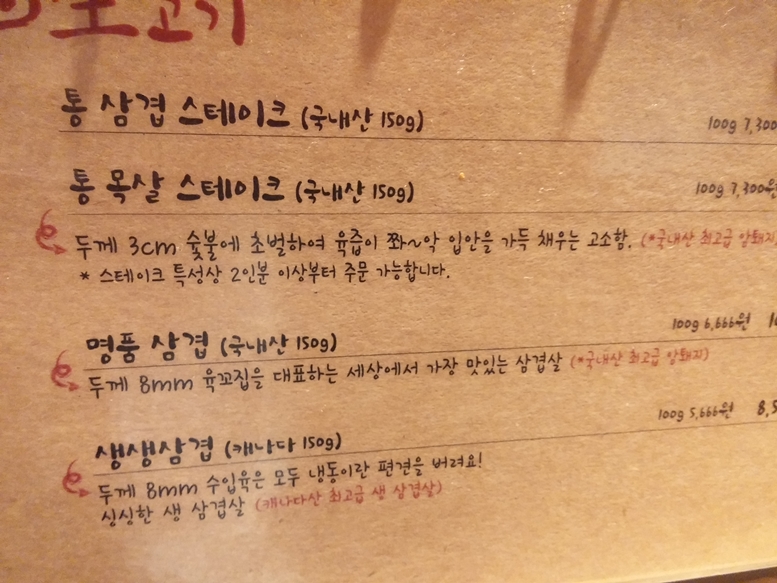 고기
통 삼겹 스테이크 (국내산 150g)
100g 7,300
통 목살 스테이크 (국내산 150g)
100g 7,300원
두께 3cm 숯불에 초벌하여 육즙이 쫘~악 입안을 가득 채우는 고소함. (*국내산 최고급 암퇘지
* 스테이크 특성상 2인분 이상부터 주문 가능합니다.
명품 삼겹 (국내산 150g)
100g 6,666원
두께 8mm 육꼬집을 대표하는 세상에서 가장 맛있는 삼겹살 (*국내산 최고급 암퇘지)
생생삼겹 (캐나다 150g)
100g 5,666원 8,5
두께 8mm 수입육은 모두 냉동이란 편견을 버려요!
싱싱한 생 삼겹살 (캐나다산 최고급 생 삼겹살)